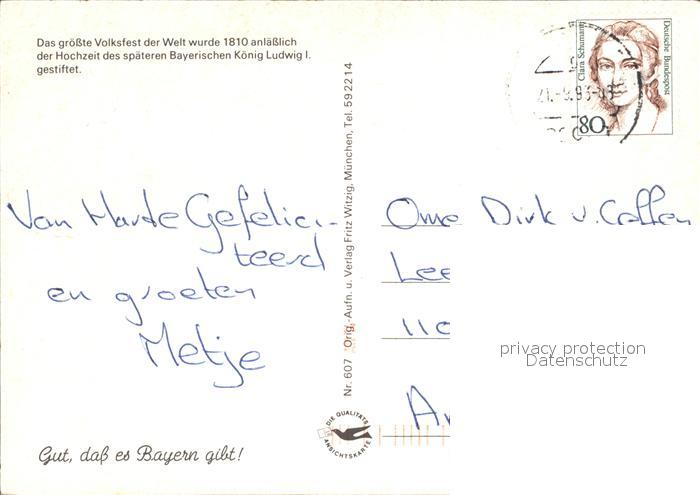 Das größte Volksfest der Welt wurde 1810 anläßlich
der Hochzeit des späteren Bayerischen König Ludwig I.
gestiftet.
Van Harte Gefelici-
teerd
en groeten
Metje
Gut, daß es Bayern gibt!
Nr. 607 Orig.-Aufn. u. Verlag Fritz Witzig, München, Tel. 592214
DIE QUALITÄTS
ANSICHTSKARTE
Clara Schumann
Deutsche Bundespost
80
Ome Dirk v. Callen
Lee
110
privacy protection
Datenschutz